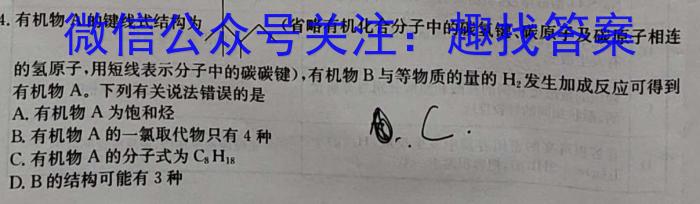 4. 有机物 A 的键线式结构为 (省略有机化合分子中的碳氢键、碳原子及碳原子相连
微信公众号关注：趣找答案
的氢原子,用短线表示分子中的碳碳键),有机物 B 与等物质的量的 H₂ 发生加成反应可得到
有机物 A。下列有关说法错误的是
A. 有机物 A 为饱和烃
B. 有机物 A 的一氯取代物只有 4 种
C. 有机物 A 的分子式为 C₈H₁₈
D. B 的结构可能有 3 种
C.